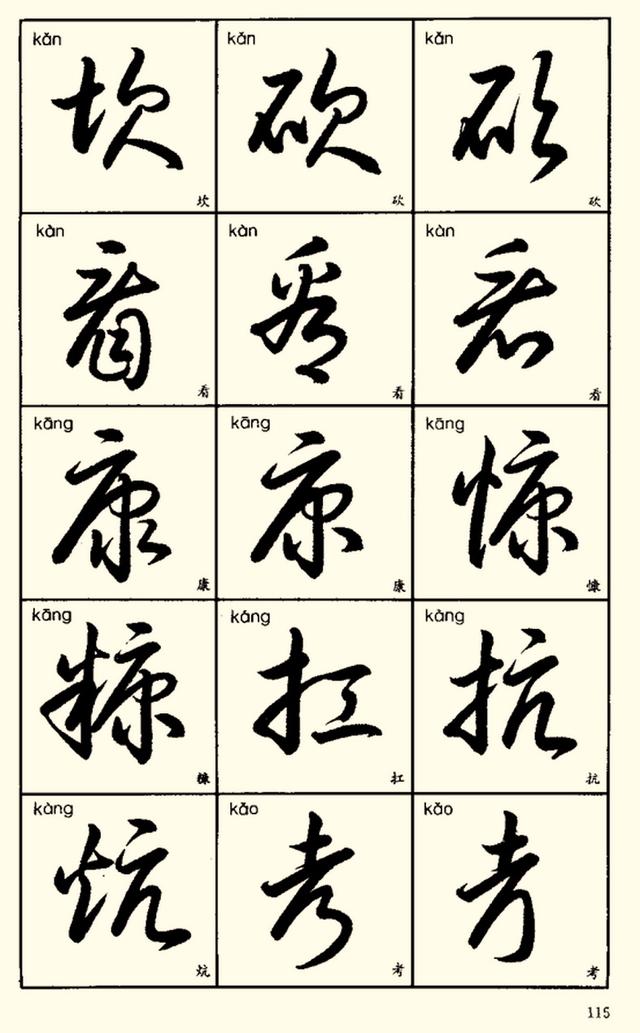 kǎn kǎn kǎn
坎 砍 砍
坎 砍 砍
kàn kàn kàn
看 看 看
看 看 看
kāng kāng kāng
康 康 慷
康 康 慷
kāng káng kàng
糠 扛 抗
糠 扛 抗
kàng kǎo kǎo
炕 考 考
炕 考 考
115